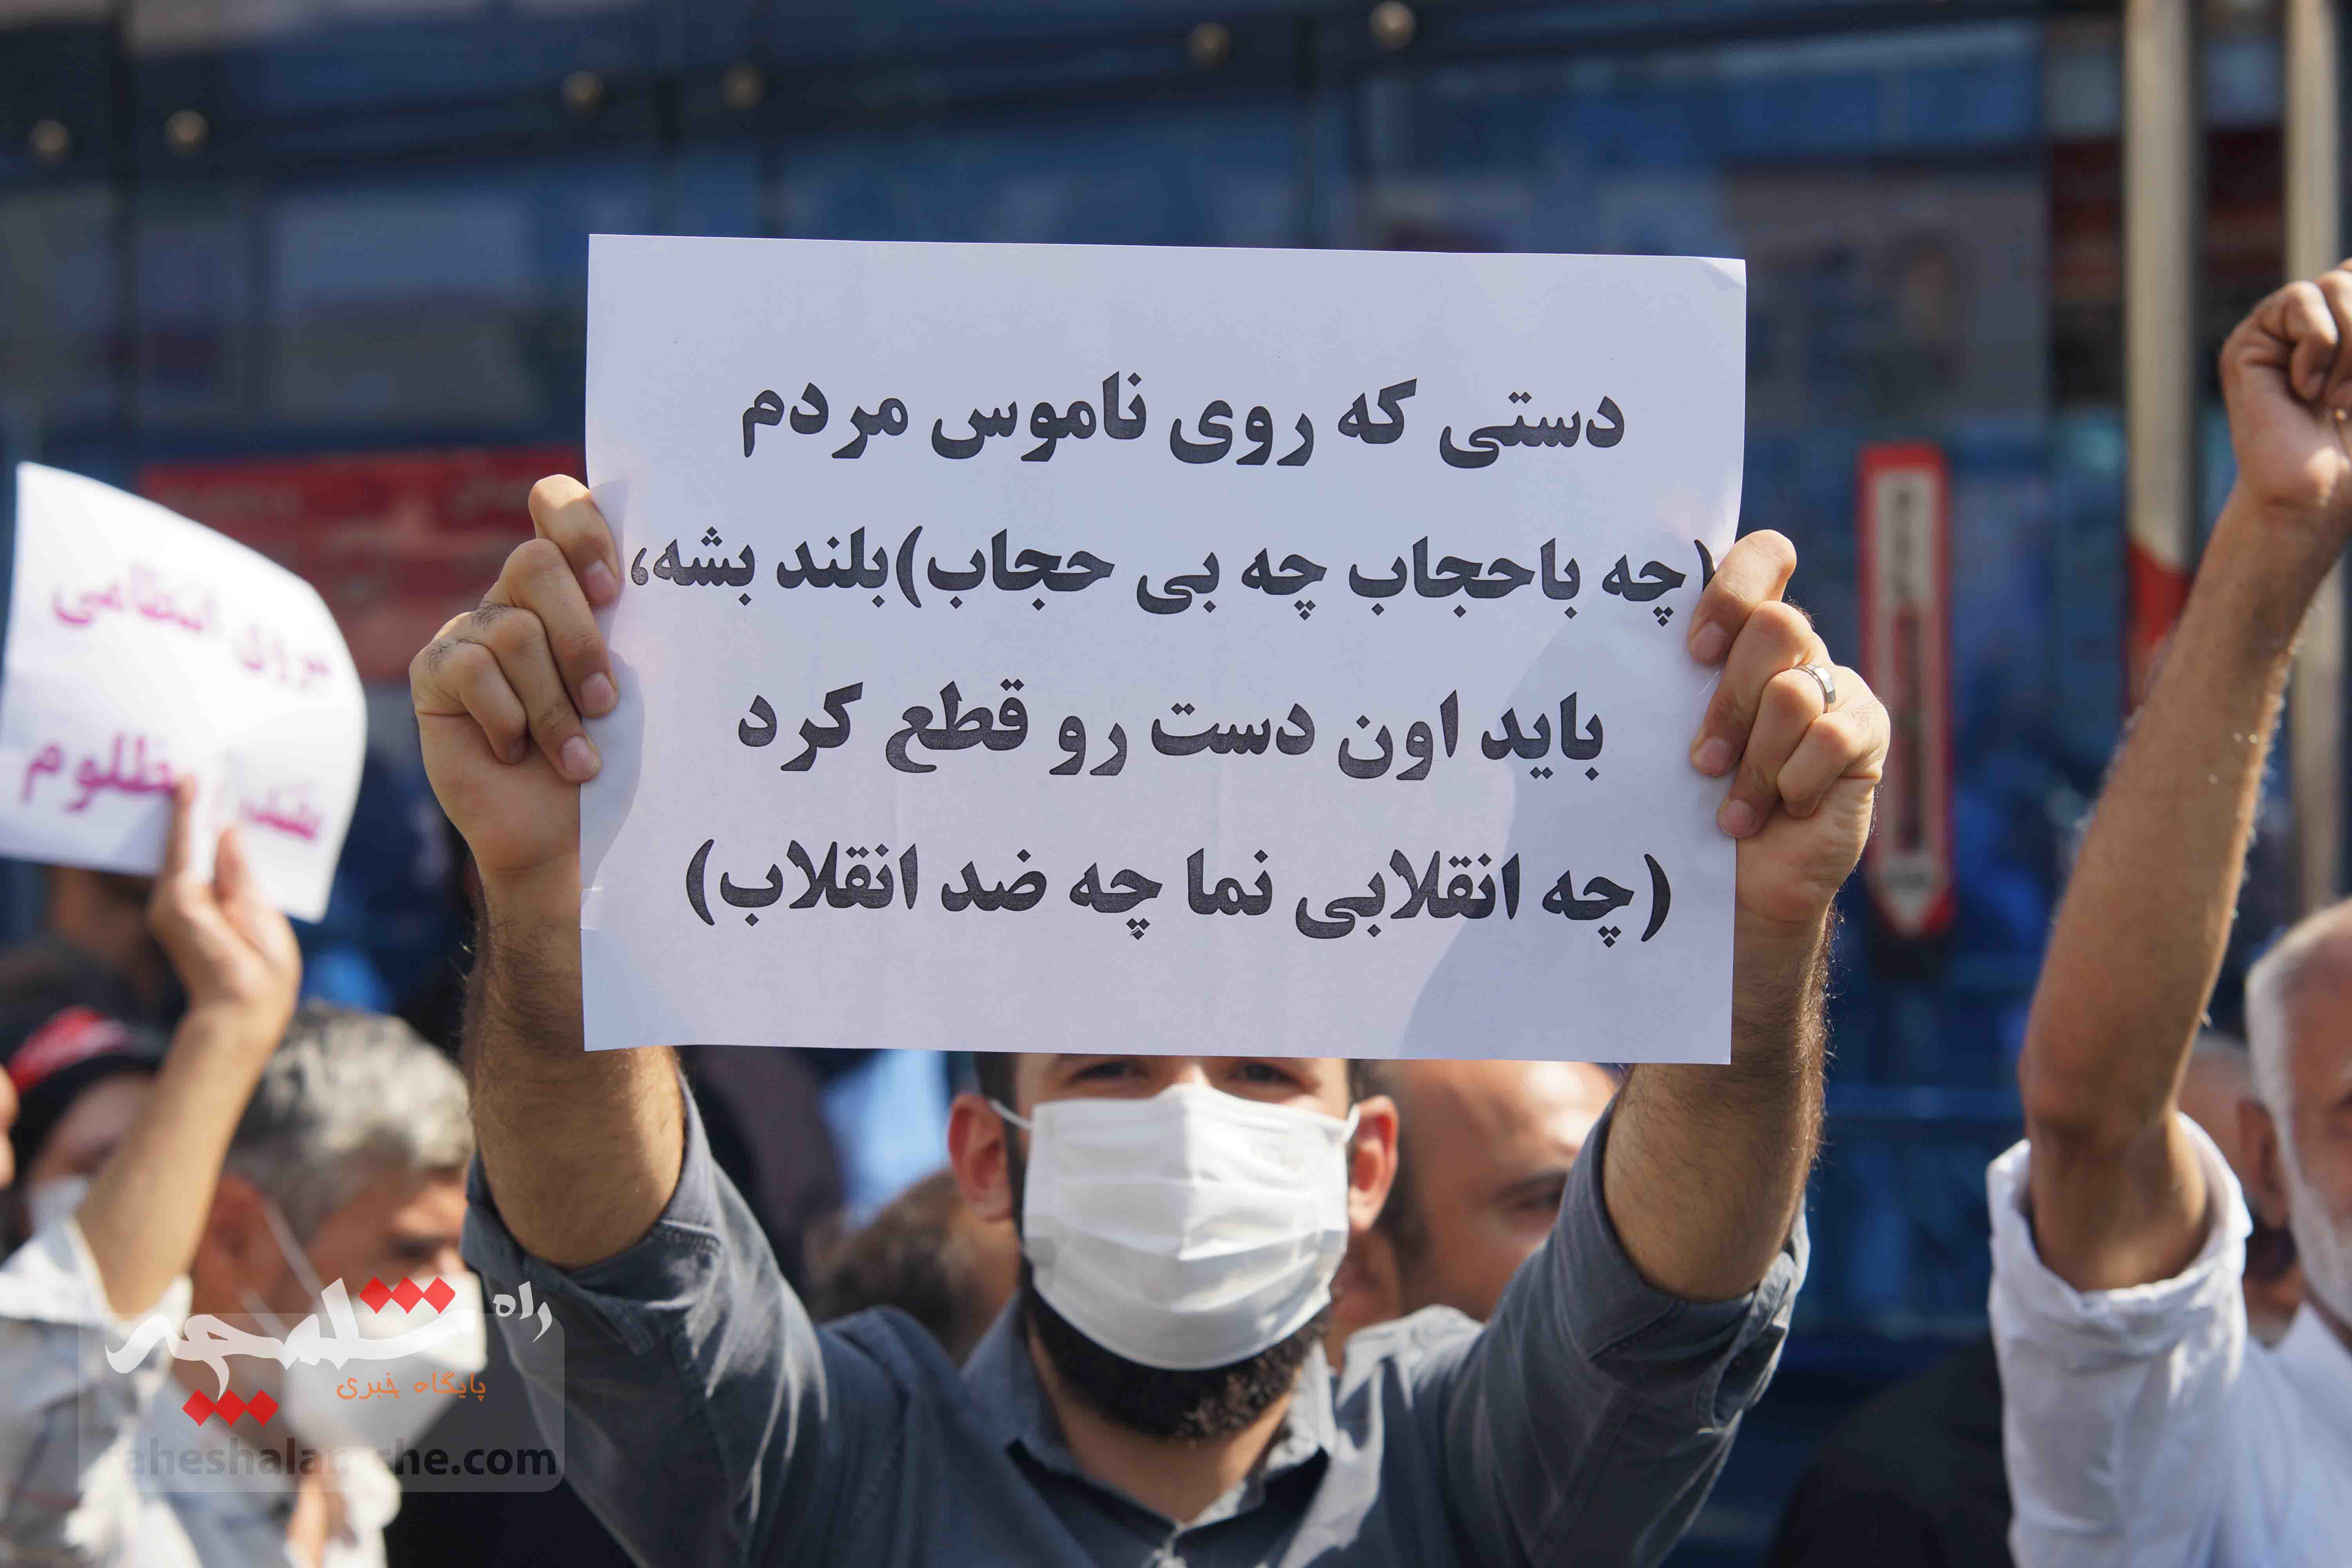 دستی که روی ناموس مردم
(چه باحجاب چه بی حجاب)بلند بشه،
باید اون دست رو قطع کرد
(چه انقلابی نما چه ضد انقلاب)
انتظامی
مظلوم
راه شلمچه
پایگاه خبری
aheshalamche.com